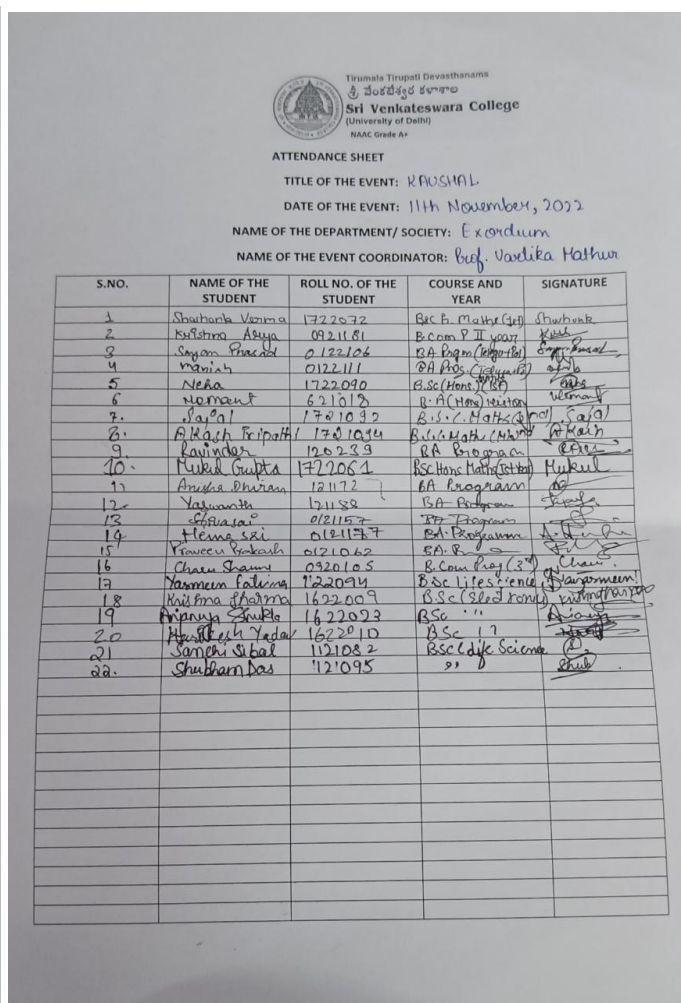 Tirumala Tirupati Devasthanams
శ్రీ వేంకటేశ్వర కళాశాల
Sri Venkateswara College
(University of Delhi)
NAAC Grade A+
ATTENDANCE SHEET
TITLE OF THE EVENT: KAUSHAL
DATE OF THE EVENT: 11th November, 2022
NAME OF THE DEPARTMENT/ SOCIETY: Exordium
NAME OF THE EVENT COORDINATOR: Prof. Vartika Mathur
S.NO. NAME OF THE STUDENT ROLL NO. OF THE STUDENT COURSE AND YEAR SIGNATURE
1 Shashank Verma 1722072 BSc h. Maths (1st) Shashank
2 Krishna Arya 0921181 B.com P II year
3 Sayam Prasad 0122106 BA Prgm
4 Manish 0122111 BA Prog.
5 Neha 1722090 B.Sc (Hons.)
6 621018 B.A (Hons)
7. Sajal 1721092 B.S.C. Maths Sajal
8. Akash Tripathi 1721094 B.S.C. Maths Akash
9. Ravinder 120239 BA Program
10. Mukul Gupta 1722061 BSc Hons Maths (Ist year) Mukul
11 Anisha Dhiran 121172 BA Program
12. Yaswanth 121188 BA Program
13 0121157 BA Program
14 Hema sai 0121177 BA. Program
15 Praveen Prakash 0121062 BA.
16 Charu 0920105 B.Com Prog (3rd) Charu.
17 Yasmeen Fatima 1122094 BSc lifescience,
18 Krishma Sharma 1622009 B.Sc
19 Ananya Shukla 1622023 BSc " "
20 Yadav 1622010 BSc
21 Sanchi Sibal 1121082 BSc (Life Science
22. Shubham Das 1121095 " Shub